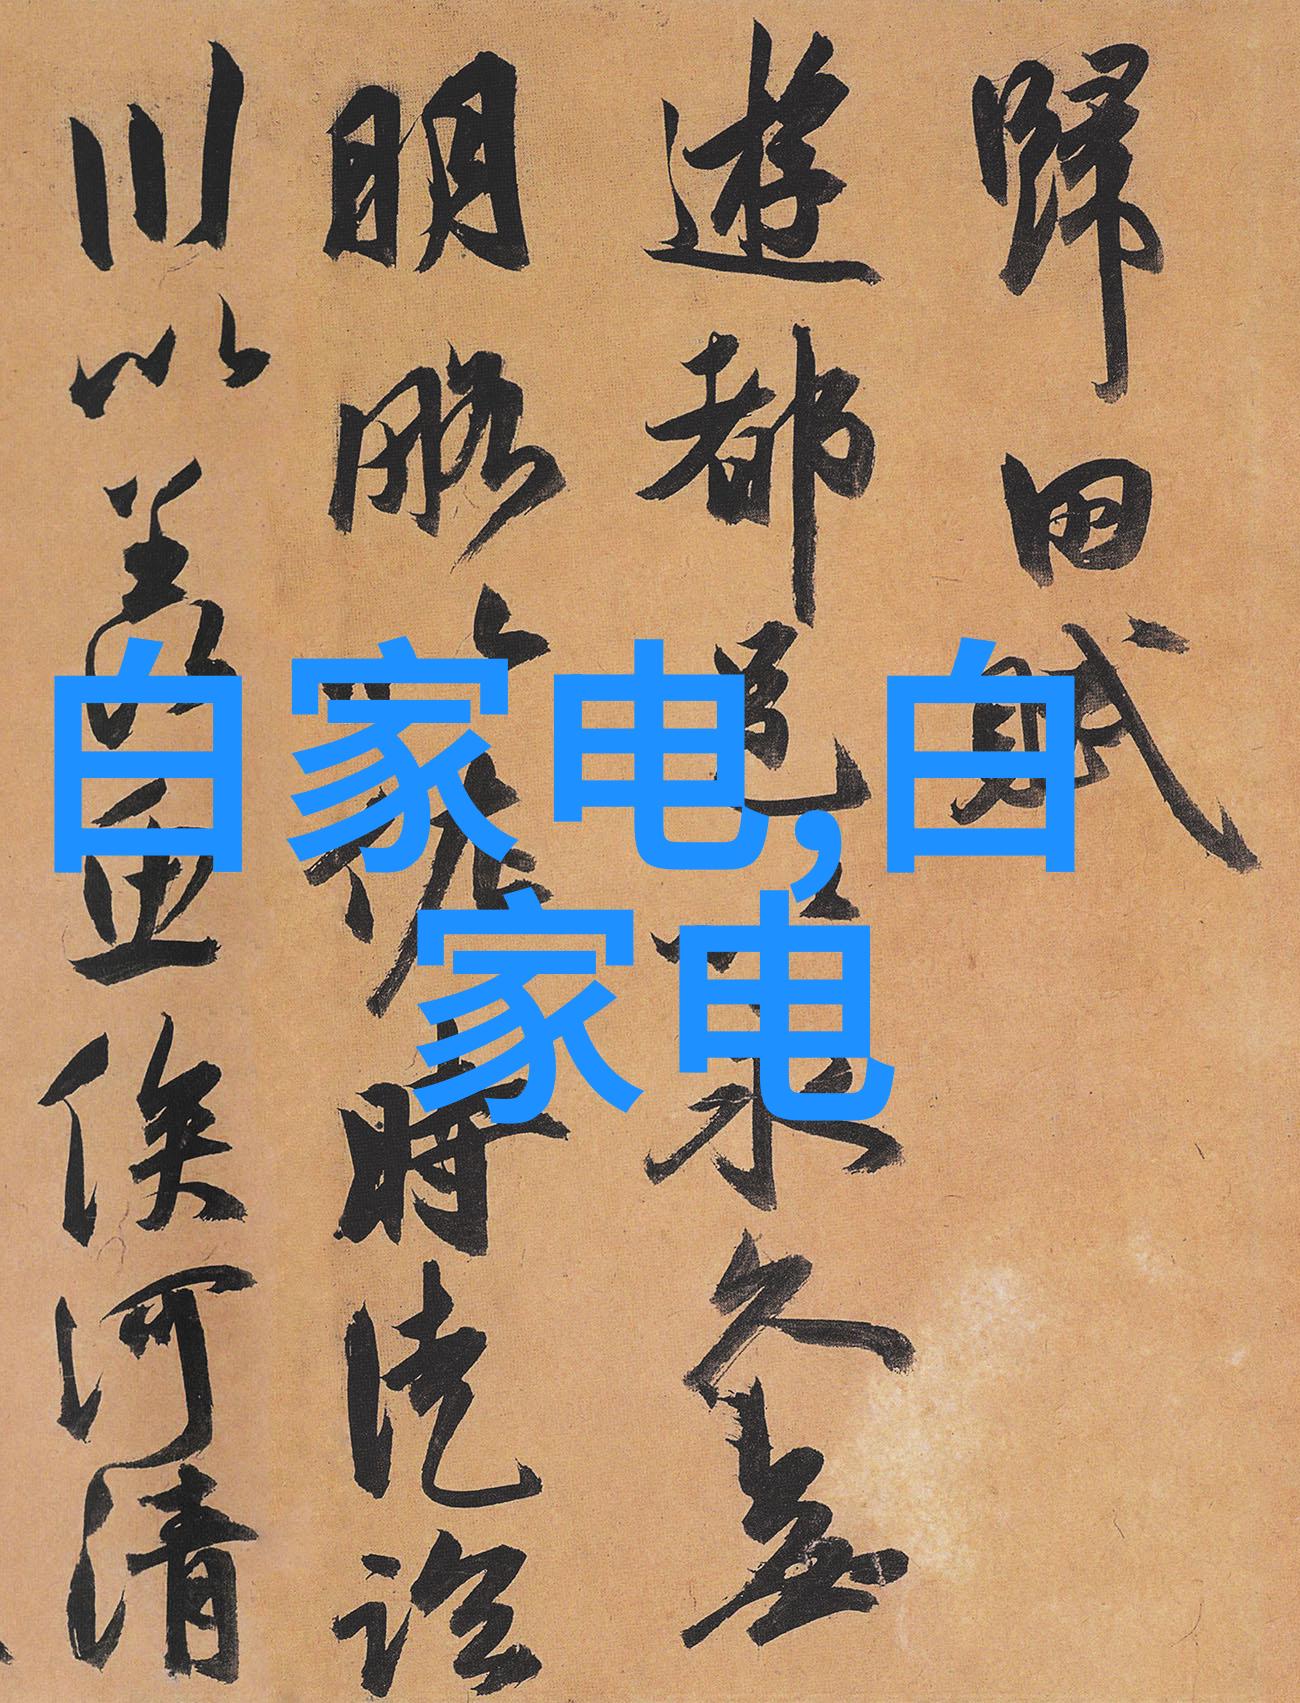 歸田賦
遊都邑以永久無
明略以佐時徒臨
川以羨魚俟河清
白家电,白
家电